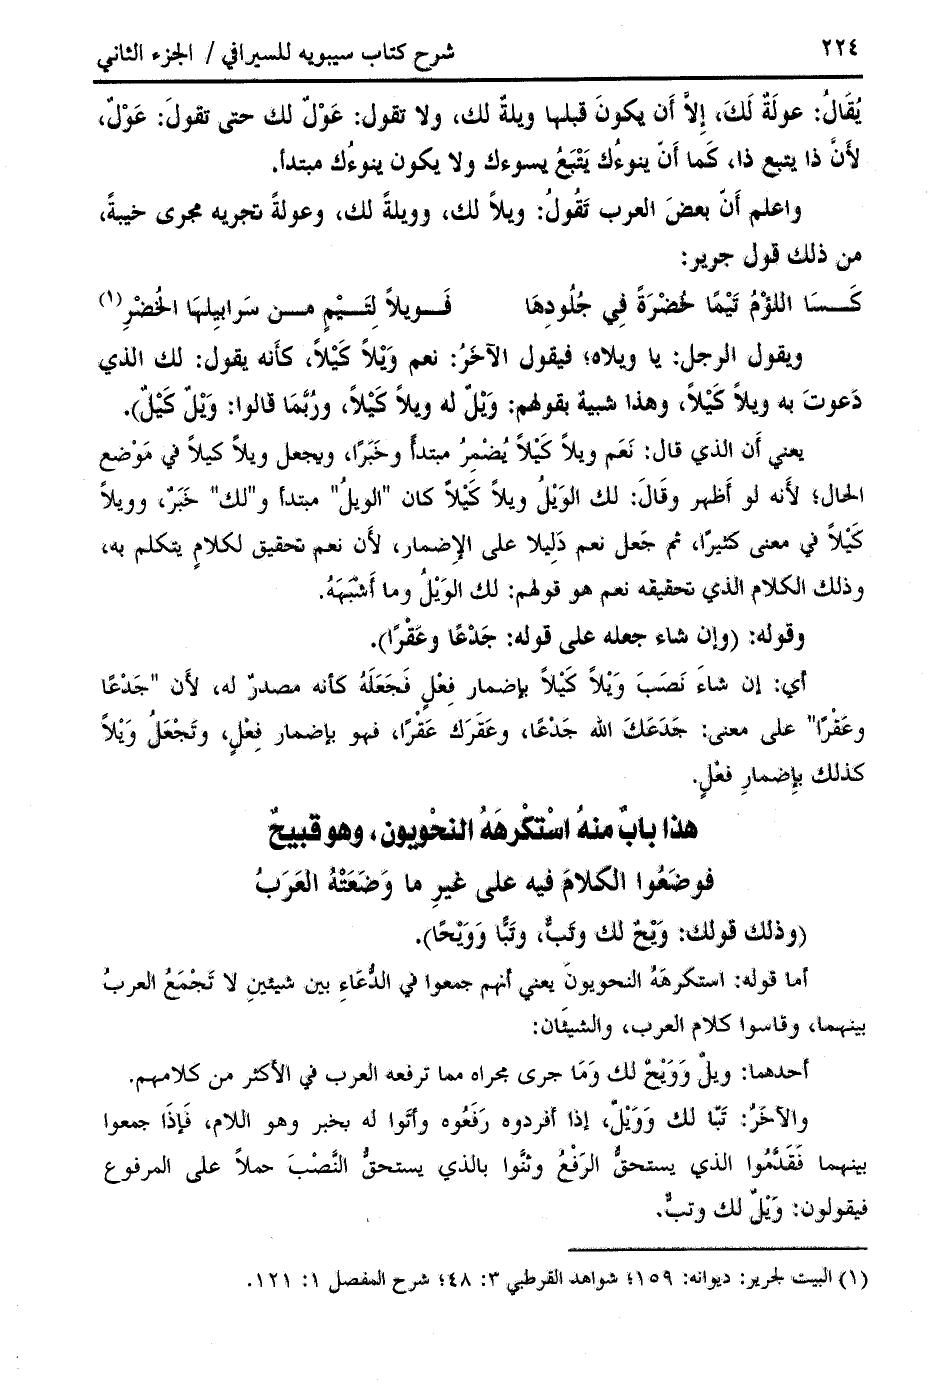 ٢٢٤ شرح كتاب سيبويه للسيرافي / الجزء الثاني
يُقَالُ: عولَةٌ لَكَ، إلاَّ أَن يكونَ قبلها ويلةٌ لك، ولا تقول: عَوْلٌ لك حتى تقولَ: عَوْلٌ،
لأَنَّ ذا يتبع ذا، كَما أنّ ينوءُك يَتْبَعُ يسوءك ولا يكون ينوءُك مبتدأ.
واعلم أَنّ بعضَ العرب تَقُولُ: ويلاً لك، وويلةً لك، وعولةً تجريه مجرى خيبةً،
من ذلك قول جرير:
كَــسَا اللؤْمُ تَيْمًا خُضْرَةً فِي جُلُودِهَا فَــويلاً لِتَــيْمٍ مــن سَرَابِيلِهَا الخُضْرِ(١)
ويقول الرجل: يا ويلاه؛ فيقول الآخَرُ: نعم وَيْلاً كَيْلاً، كأَنه يقول: لك الذي
دَعوتَ به ويلاً كَيْلاً، وهذا شبية بقولهم: وَيْلٌ له ويلاً كَيْلاً، ورُبَّمَا قالوا: وَيْلٌ كَيْلٌ).
يعني أَن الذي قال: نَعَم ويلاً كَيْلاً يُضْمِرُ مبتدأً وخَبَرًا، ويجعل ويلاً كيلاً في مَوْضع
الحال؛ لأَنه لو أَظهر وقَالَ: لك الوَيْلُ ويلاً كَيْلاً كان "الويلُ" مبتدأ و"لك" خَبَرٌ، وويلاً
كَيْلاً في معنى كثيرًا، ثم جَعل نعم دَلِيلا على الإضمار، لأَن نعم تحقيق لكلامٍ يتكلم به،
وذلك الكلام الذي تحقيقه نعم هو قولهم: لك الوَيْلُ وما أَشْبَهَهُ.
وقوله: (وإن شاء جعله على قوله: جَدْعًا وعَقْرًا).
أي: إن شاءَ نَصَبَ وَيْلاً كَيْلاً بإضمار فِعْلٍ فَجَعَلَهُ كأنه مصدرٌ له، لأَن "جَدْعًا
وعَقْرًا" على معنى: جَدَعَكَ الله جَدْعًا، وعَقَرَك عَقْرًا، فهو بإضمار فِعْلٍ، وتَجْعَلُ وَيْلاً
كذلك بإِضمارِ فِعْلٍ.
هذا بابٌ منهُ اسْتَكْرهَهُ النحْويون، وهو قبيحٌ
فوضَعُوا الكلامَ فيه على غيرِ ما وَضَعَتْهُ العَرَبُ
(وذلك قولك: وَيْحٌ لك وتَبٌّ، وتَبًّا وَوَيْحًا).
أما قوله: استكرهَهُ النحويونَ يعني أنهم جمعوا في الدُّعَاءِ بين شيئينِ لا تَجْمَعُ العربُ
بينهما، وقاسوا كلام العرب، والشيئان:
أحدهما: ويلٌ وَوَيْحٌ لك وَمَا جرى مجراه مما ترفعه العرب في الأكثر من كلامهم.
والآخَرُ: تَبّا لك وَوَيْلٌ، إذا أفردوه رَفَعُوه وأتَوا له بخبر وهو اللام، فَإِذَا جمعوا
بينهما فَقَدَّمُوا الذي يستحقُّ الرَفْعُ وثنَّوا بالذي يستحقُّ النَّصْبَ حملاً على المرفوع
فيقولون: وَيْلٌ لك وتبٌّ.
(١) البيت لجرير: ديوانه: ١٥٩؛ شواهد القرطبي ٣: ٤٨؛ شرح المفصل ١: ١٢١.